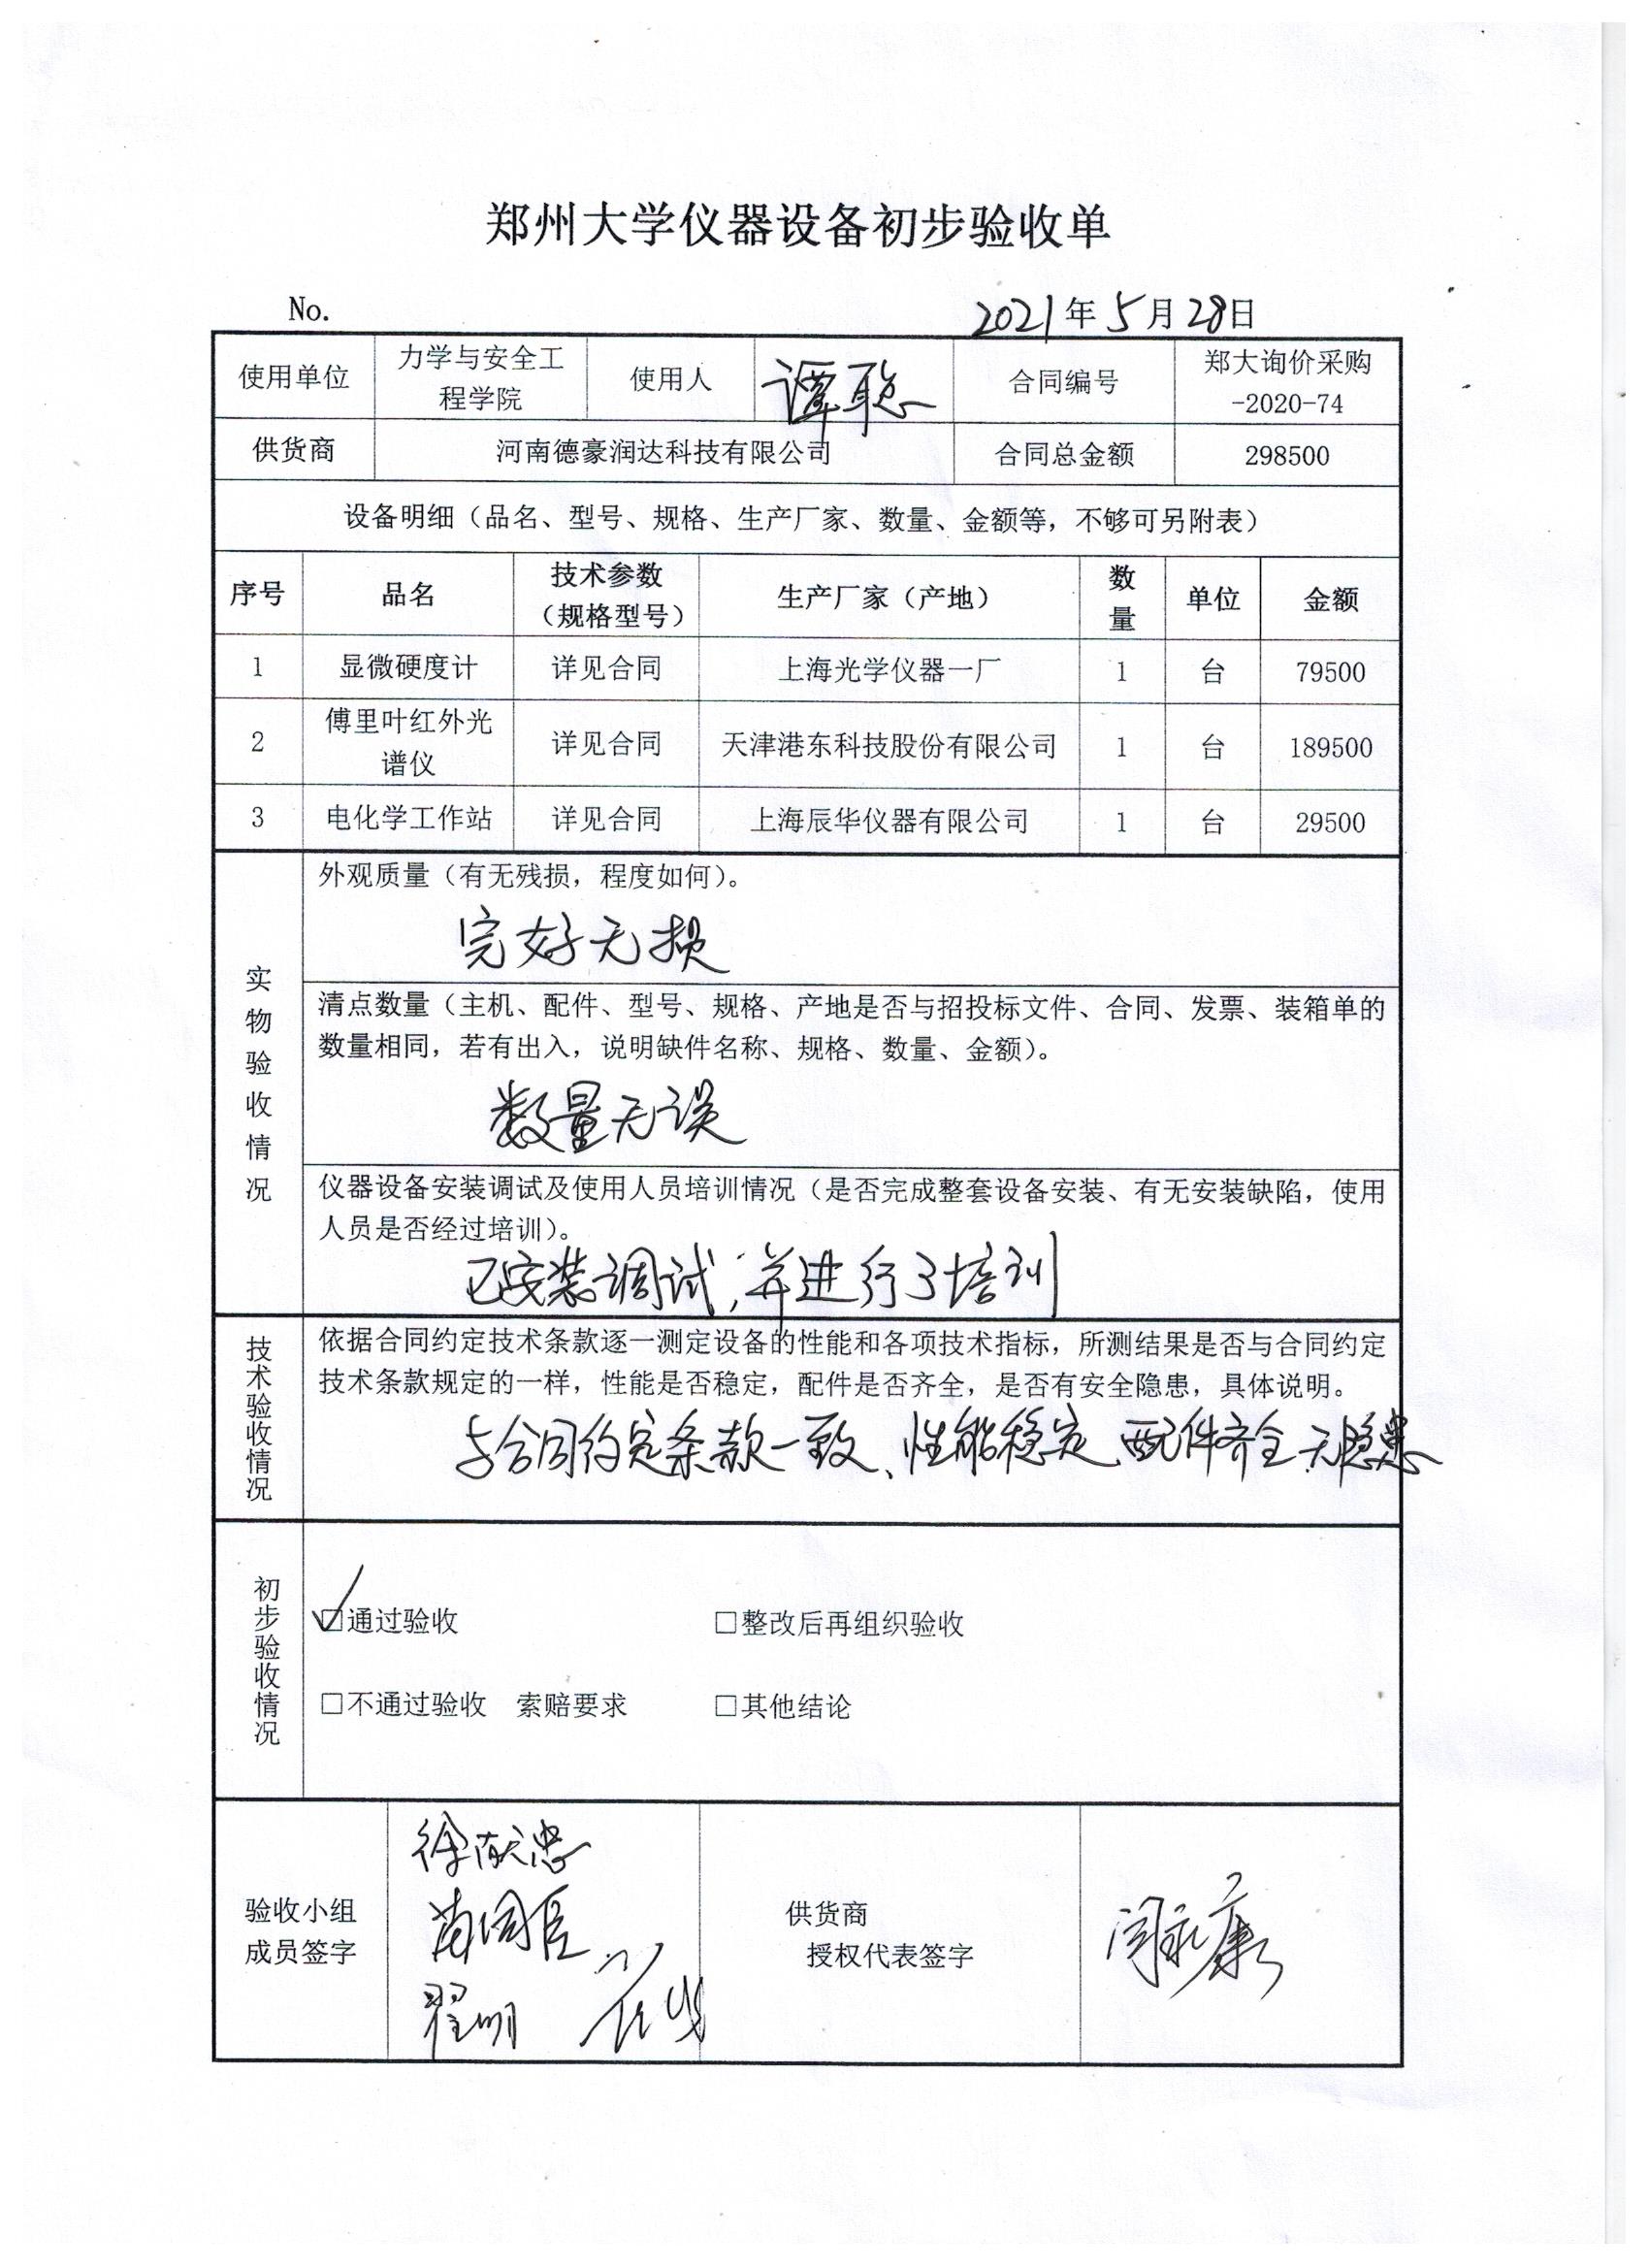 郑州大学仪器设备初步验收单
No.
2021年5月28日
使用单位 力学与安全工程学院 使用人 谭聪 合同编号 郑大询价采购-2020-74
供货商 河南德豪润达科技有限公司 合同总金额 298500
设备明细（品名、型号、规格、生产厂家、数量、金额等，不够可另附表）
序号 品名 技术参数（规格型号） 生产厂家（产地） 数量 单位 金额
1 显微硬度计 详见合同 上海光学仪器一厂 1 台 79500
2 傅里叶红外光谱仪 详见合同 天津港东科技股份有限公司 1 台 189500
3 电化学工作站 详见合同 上海辰华仪器有限公司 1 台 29500
实物验收情况
外观质量（有无残损，程度如何）。
完好无损
清点数量（主机、配件、型号、规格、产地是否与招投标文件、合同、发票、装箱单的
数量相同，若有出入，说明缺件名称、规格、数量、金额）。
数量无误
仪器设备安装调试及使用人员培训情况（是否完成整套设备安装、有无安装缺陷，使用
人员是否经过培训）。
已安装调试，并进行了培训
技术验收情况
依据合同约定技术条款逐一测定设备的性能和各项技术指标，所测结果是否与合同约定
技术条款规定的一样，性能是否稳定，配件是否齐全，是否有安全隐患，具体说明。
与合同约定条款一致、性能稳定、配件齐全、无隐患
初步验收情况
☑通过验收 □整改后再组织验收
□不通过验收 索赔要求 □其他结论
验收小组
成员签字
徐献忠
翟明
供货商
授权代表签字
闫永康